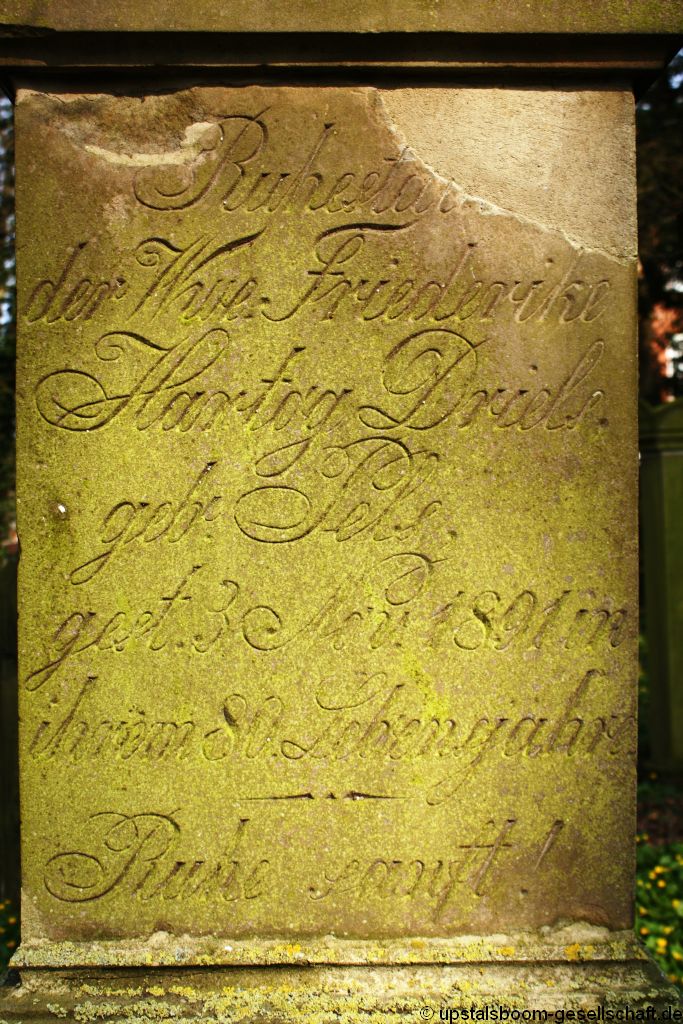 Ruhestät
der Wwe. Friederike
Hartog Driels.
geb. Pels.
gest. 3 Nov. 1891 in
ihrem 80. Lebensjahre
Ruhe sanft!
© upstalsboom-gesellschaft.de